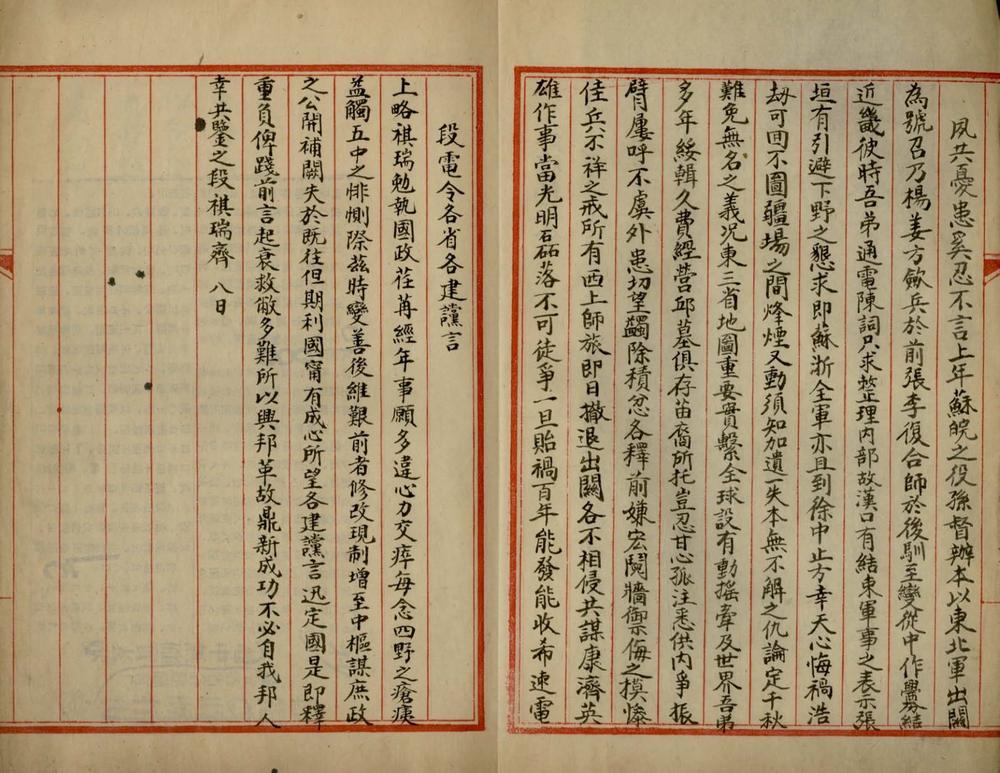 夙共憂患奚忍不言上年蘇皖之役孫督辦本以東北軍出關
為號召乃楊姜方歛兵於前張李復合師於後馴至變從中作釁結
近畿彼時吾弟通電陳詞只求整理內部故漢口有結束軍事之表示張
垣有引避下野之懇求即蘇浙全軍亦且到徐中止方幸天心悔禍浩
劫可回不圖疆場之間烽煙又動須知加遺一失本無不解之仇論定千秋
難免無名之義况東三省地圖重要實繫全球設有動搖牽及世界吾弟
多年綏輯久費經營邱墓俱存苗裔所托豈忍甘心孤注悉供內爭振
臂屢呼不虞外患切望蠲除積忿各釋前嫌宏鬩牆禦侮之模懍
佳兵不祥之戒所有西上師旅即日撤退出關各不相侵共謀康濟英
雄作事當光明石砳落不可徒爭一旦貽禍百年能發能收希速電
段電令各省各建讜言
上略祺瑞勉執國政荏苒經年事願多違心力交瘁每念四野之瘡痍
益觸五中之悱惻際茲時變善後維艱前者修改現制增至中樞謀庶政
之公開補闕失於既往但期利國甯有成心所望各建讜言迅定國是即釋
重負俾踐前言起衰救敝多難所以興邦革故鼎新成功不必自我邦人
幸共鑒之段祺瑞齊 八日